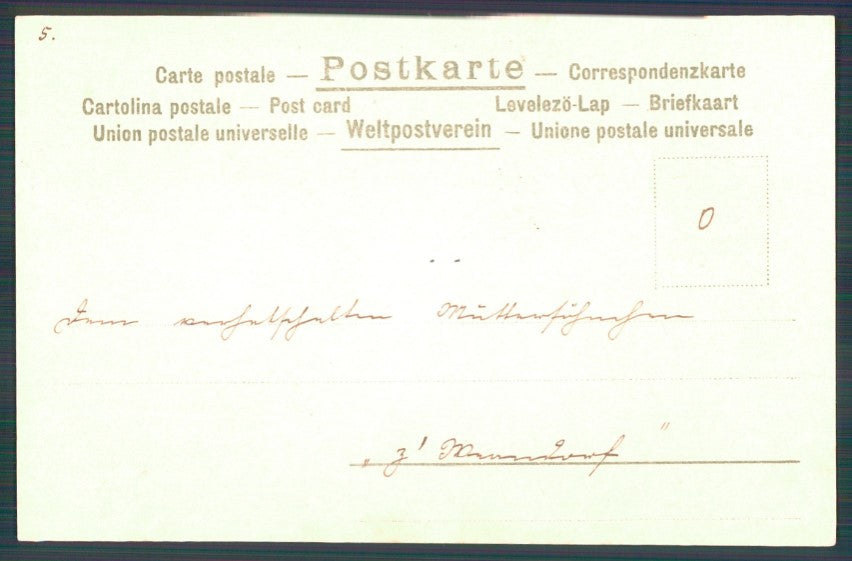 5.
Carte postale — Postkarte — Correspondenzkarte
Cartolina postale — Post card Levelezö-Lap — Briefkaart
Union postale universelle — Weltpostverein — Unione postale universale
0
Dem verhätschelten Muttersöhnchen
„ z'